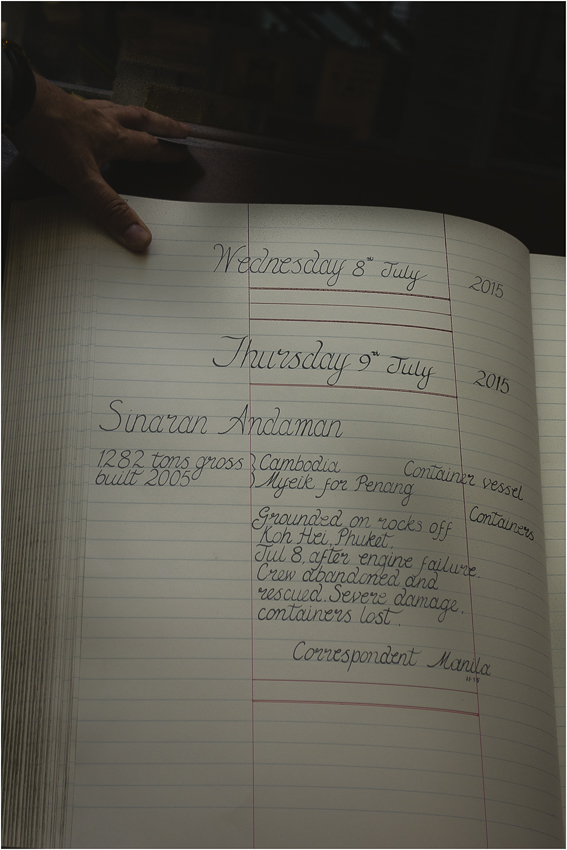 Wednesday 8th July 2015
Thursday 9th July 2015
Sinaran Andaman
1282 tons gross } Cambodia Container vessel
built 2005 } Myeik for Penang
Containers
Grounded on rocks off
Koh Hei, Phuket.
Jul 8, after engine failure.
Crew abandoned and
rescued. Severe damage,
containers lost.
Correspondent Manila